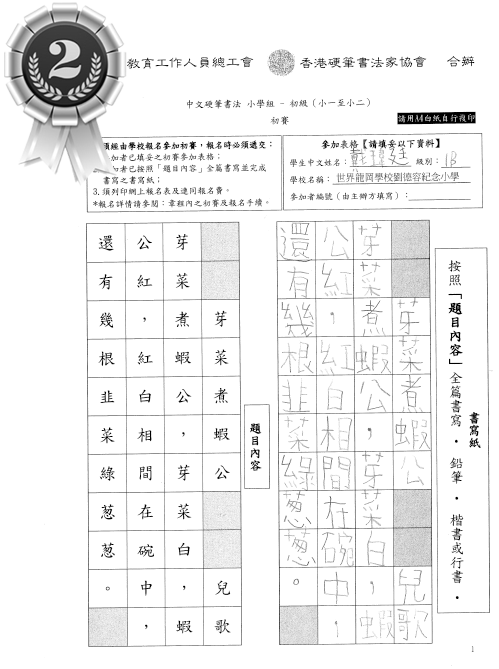 2
教育工作人員總工會 香港硬筆書法家協會 合辦
中文硬筆書法 小學組 - 初級（小一至小二）
初賽
請用A4白紙自行複印
須經由學校報名參加初賽，報名時必須遞交：
加者已填妥之初賽參加表格；
加者已按照「題目內容」全篇書寫並完成
書寫之書寫紙；
3. 須列印網上報名表及連同報名費。
*報名詳情請參閱：章程內之初賽及報名手續。
參加表格【請填妥以下資料】
學生中文姓名：戴瑋廷 級別：1B
學校名稱：世界龍岡學校劉德容紀念小學
參加者編號（由主辦方填寫）：
書寫紙
按照「題目內容」全篇書寫 • 鉛筆 • 楷書或行書 •
芽菜煮蝦公 兒歌
芽菜煮蝦公，芽菜白，蝦
公紅，紅白相間在碗中，
還有幾根韭菜綠葱葱。
題目內容
芽菜煮蝦公 兒歌
芽菜煮蝦公，芽菜白，蝦
公紅，紅白相間在碗中，
還有幾根韭菜綠葱葱。
1